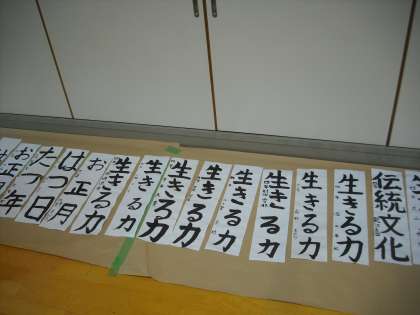 お正
たつ年
はつ日
お正月
生きる力
生きる力
生きる力
生きる力
生きる力
生きる力
生きる力
生きる力
伝統文化